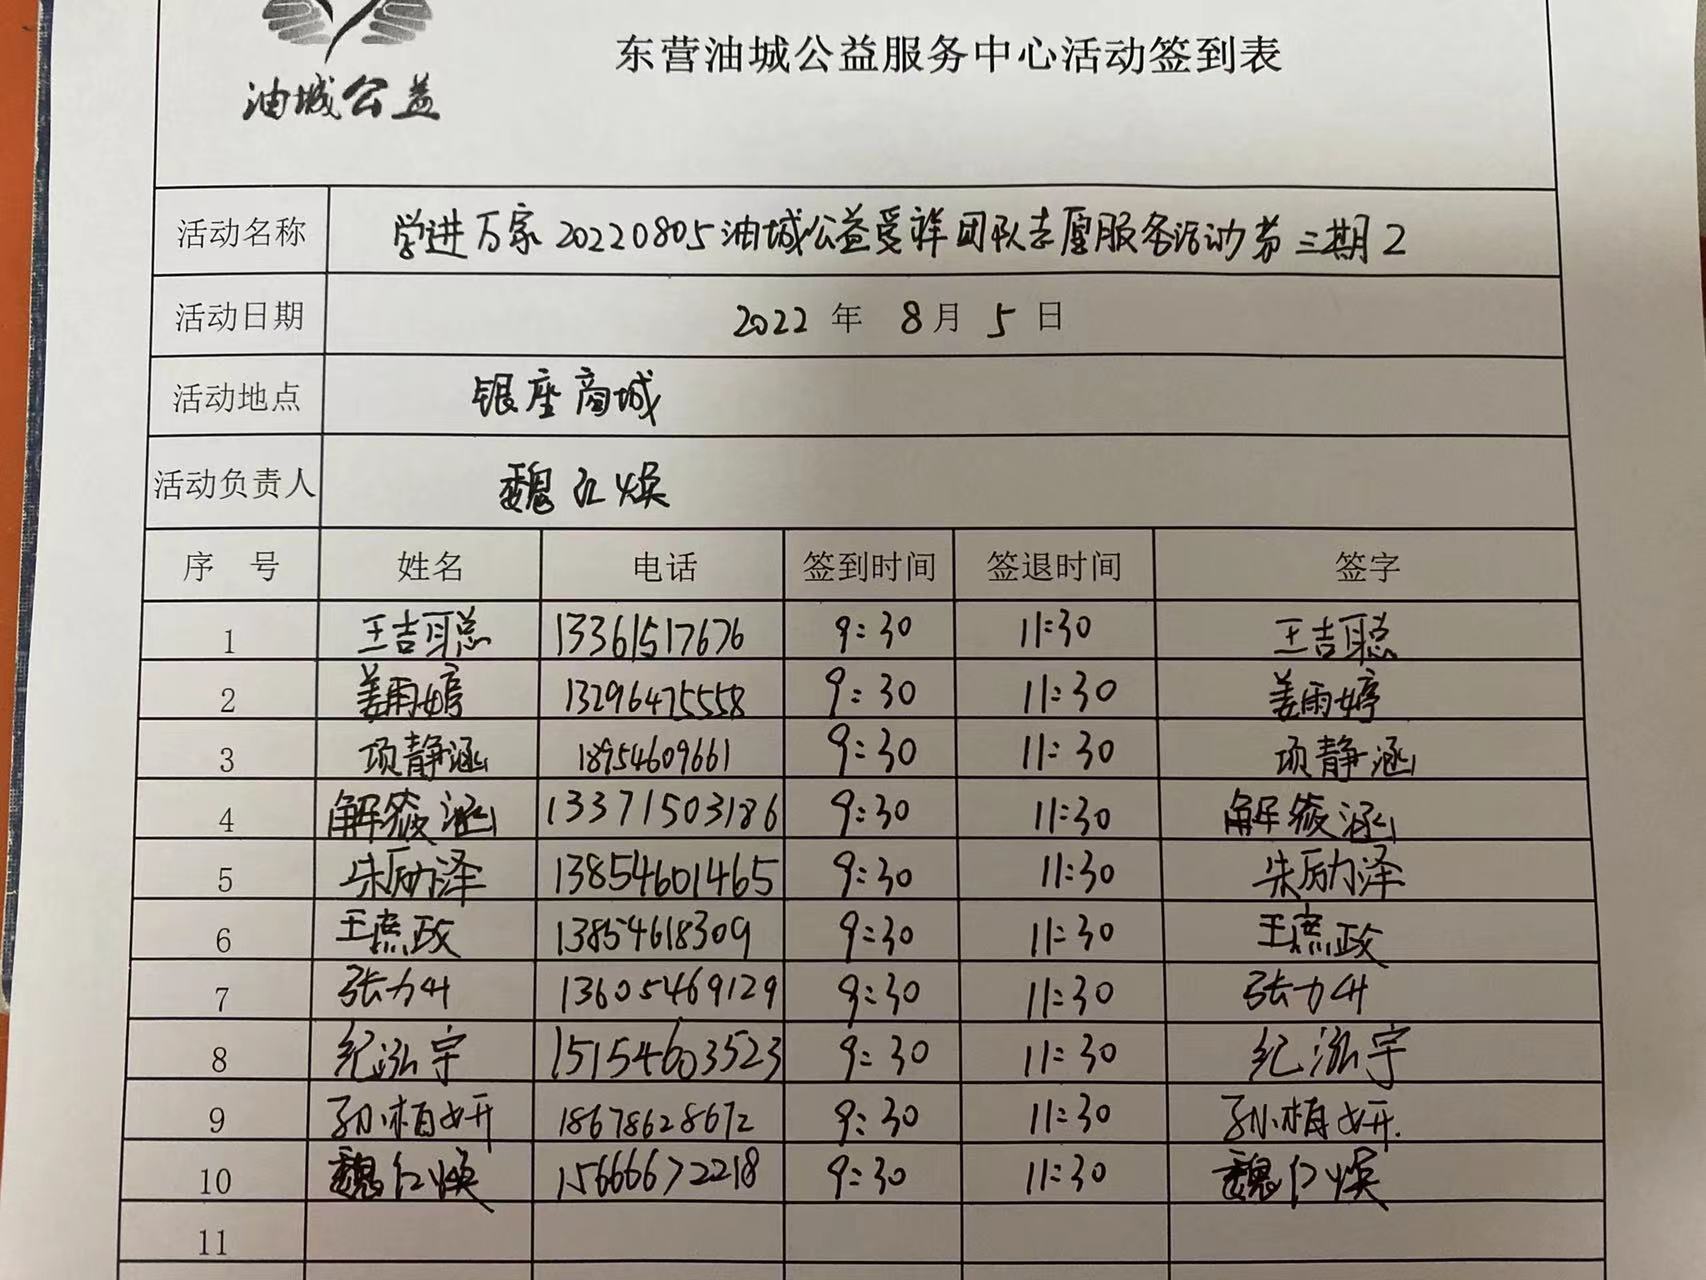 油城公益
东营油城公益服务中心活动签到表
活动名称 学进万家20220805油城公益受祥团队志愿服务活动第三期2
活动日期 2022年 8月 5日
活动地点 银座商城
活动负责人 魏仁焕
序 号 姓名 电话 签到时间 签退时间 签字
1 王吉聪 13361517676 9:30 11:30 王吉聪
2 姜雨婷 13296475558 9:30 11:30 姜雨婷
3 项静涵 18954609661 9:30 11:30 项静涵
4 解筱涵 13371503186 9:30 11:30 解筱涵
5 朱励泽 13854601465 9:30 11:30 朱励泽
6 王庶政 13854618309 9:30 11:30 王庶政
7 张力升 13605469129 9:30 11:30 张力升
8 纪泓宇 15154603523 9:30 11:30 纪泓宇
9 孙楨妍 18678628672 9:30 11:30 孙楨妍
10 魏仁焕 15666672218 9:30 11:30 魏仁焕
11